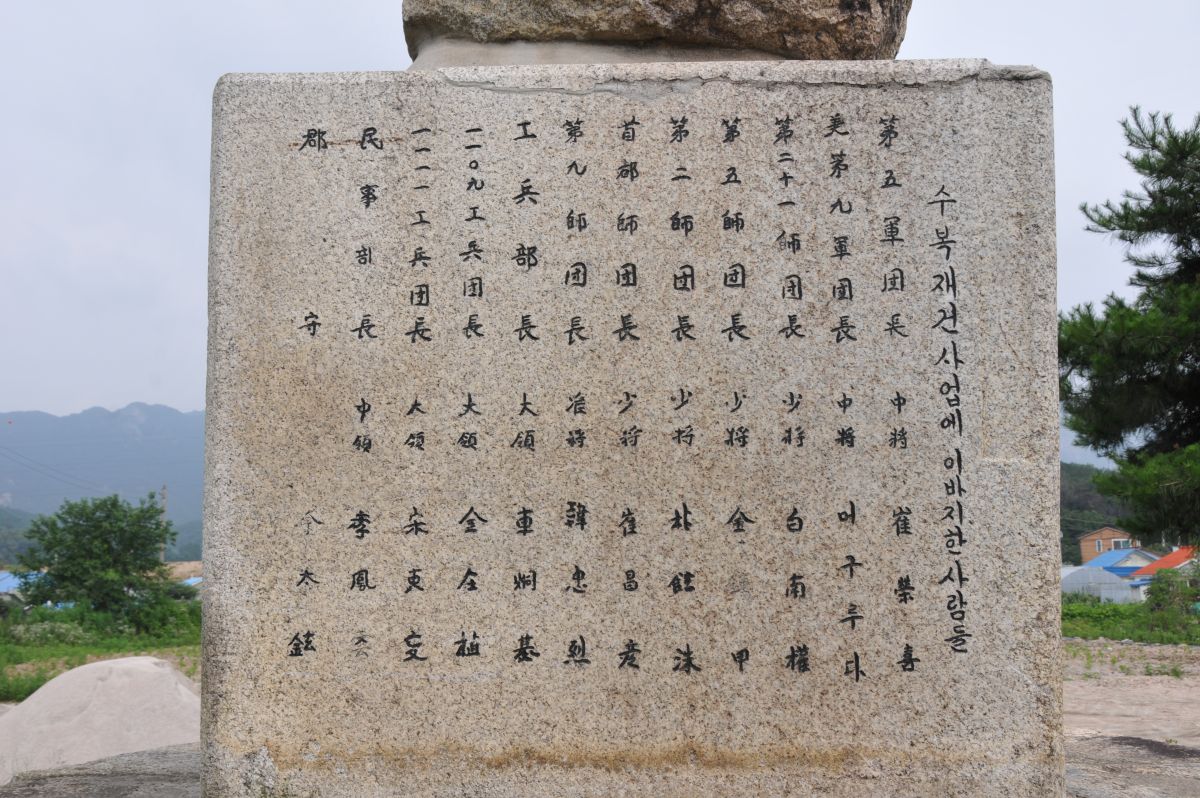 수복재건사업에 이바지한 사람들
第五軍団長 中將 崔榮喜
美第九軍団長 中將
第二十一師団長 少將 白南權
第五師団長 少將 金 甲
第二師団長 少將 朴鉉洙
首都師団長 少將 崔昌彦
第九師団長 准將 韓忠烈
工兵部長 大領 車炯基
一一〇九工兵団長 大領 金全植
一一一一工兵団長 大領 宋東文
民事副長 中領 李鳳
郡守 鉉